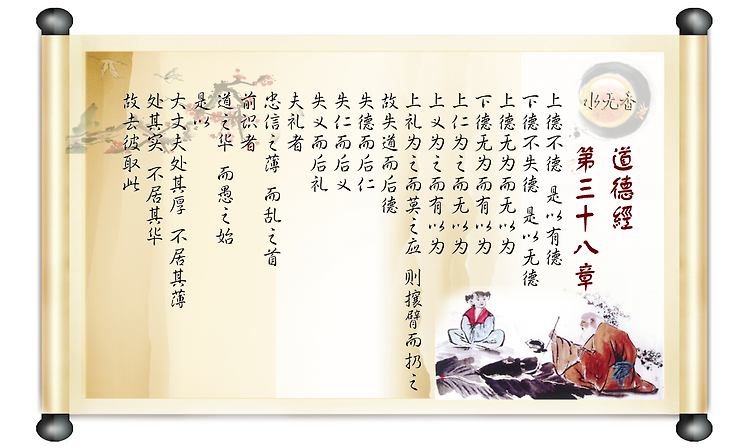 水无香
道德經
第三十八章
上德不德 是以有德
下德不失德 是以无德
上德无为而无以为
下德无为而有以为
上仁为之而无以为
上义为之而有以为
上礼为之而莫之应 则攘臂而扔之
故失道而后德
失德而后仁
失仁而后义
失义而后礼
夫礼者
忠信之薄 而乱之首
前识者
道之华 而愚之始
是以
大丈夫处其厚 不居其薄
处其实 不居其华
故去彼取此